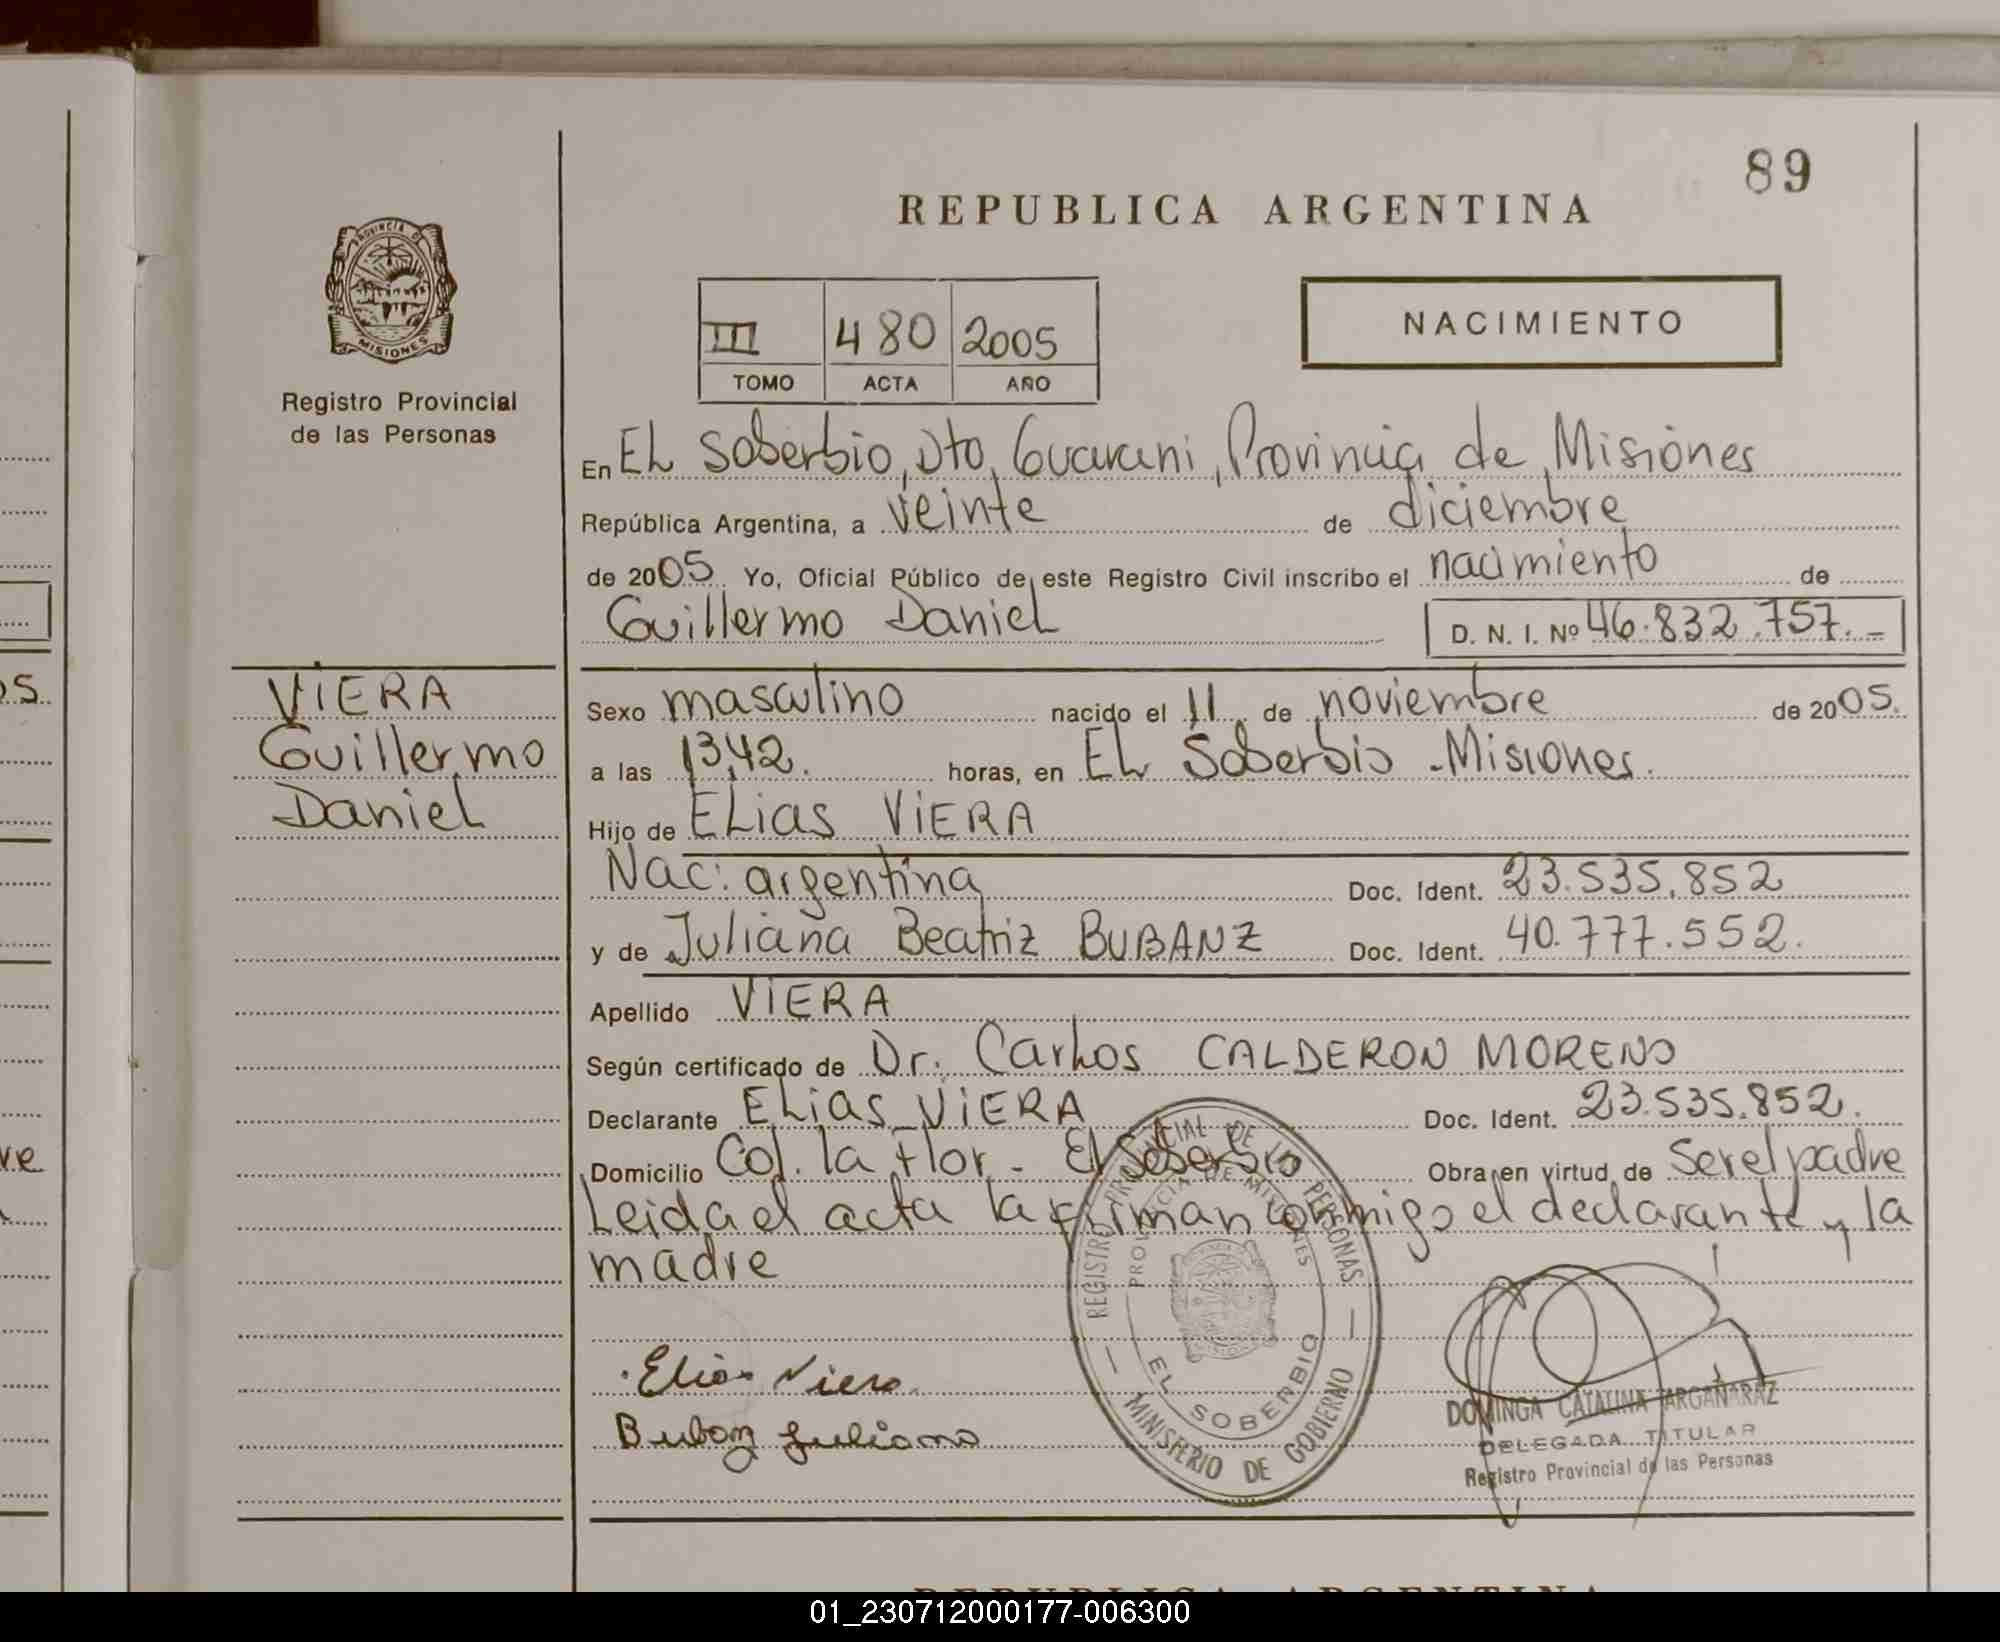 89
REPUBLICA ARGENTINA
PROVINCIA DE
MISIONES
Registro Provincial
de las Personas
III 480 2005
TOMO ACTA AÑO
NACIMIENTO
En EL Soberbio, Dto, Guarani, Provincia de Misiones
República Argentina, a veinte de diciembre
de 2005 Yo, Oficial Público de este Registro Civil inscribo el nacimiento de
Guillermo Daniel D. N. I. Nº 46.832.757.-
VIERA
Guillermo
Daniel
Sexo masculino nacido el 11 de noviembre de 2005.
a las 13,42. horas, en EL Soberbio - Misiones.
Hijo de ELias VIERA
Nac: argentina Doc. Ident. 23.535.852
y de Juliana Beatriz BUBANZ Doc. Ident. 40.777.552.
Apellido VIERA
Según certificado de Dr. Carlos CALDERON MORENO
Declarante ELias VIERA Doc. Ident. 23.535.852.
Domicilio Col. la Flor - El Soberbio Obra en virtud de Ser el padre
Leida el acta la firman conmigo el declarante y la
madre
REGISTRO PROVINCIAL DE LAS PERSONAS
PROVINCIA DE MISIONES
EL SOBERBIO
MINISTERIO DE GOBIERNO
Elias Viera
Bubanz Juliana
DOMINGA CATALINA ARGAÑARAZ
DELEGADA TITULAR
Registro Provincial de las Personas
REPUBLICA ARGENTINA
01_230712000177-006300